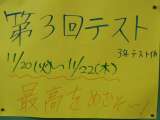 第3回テスト
3年テスト係
11/20(火)〜11/22(木)
最高をめざせー!